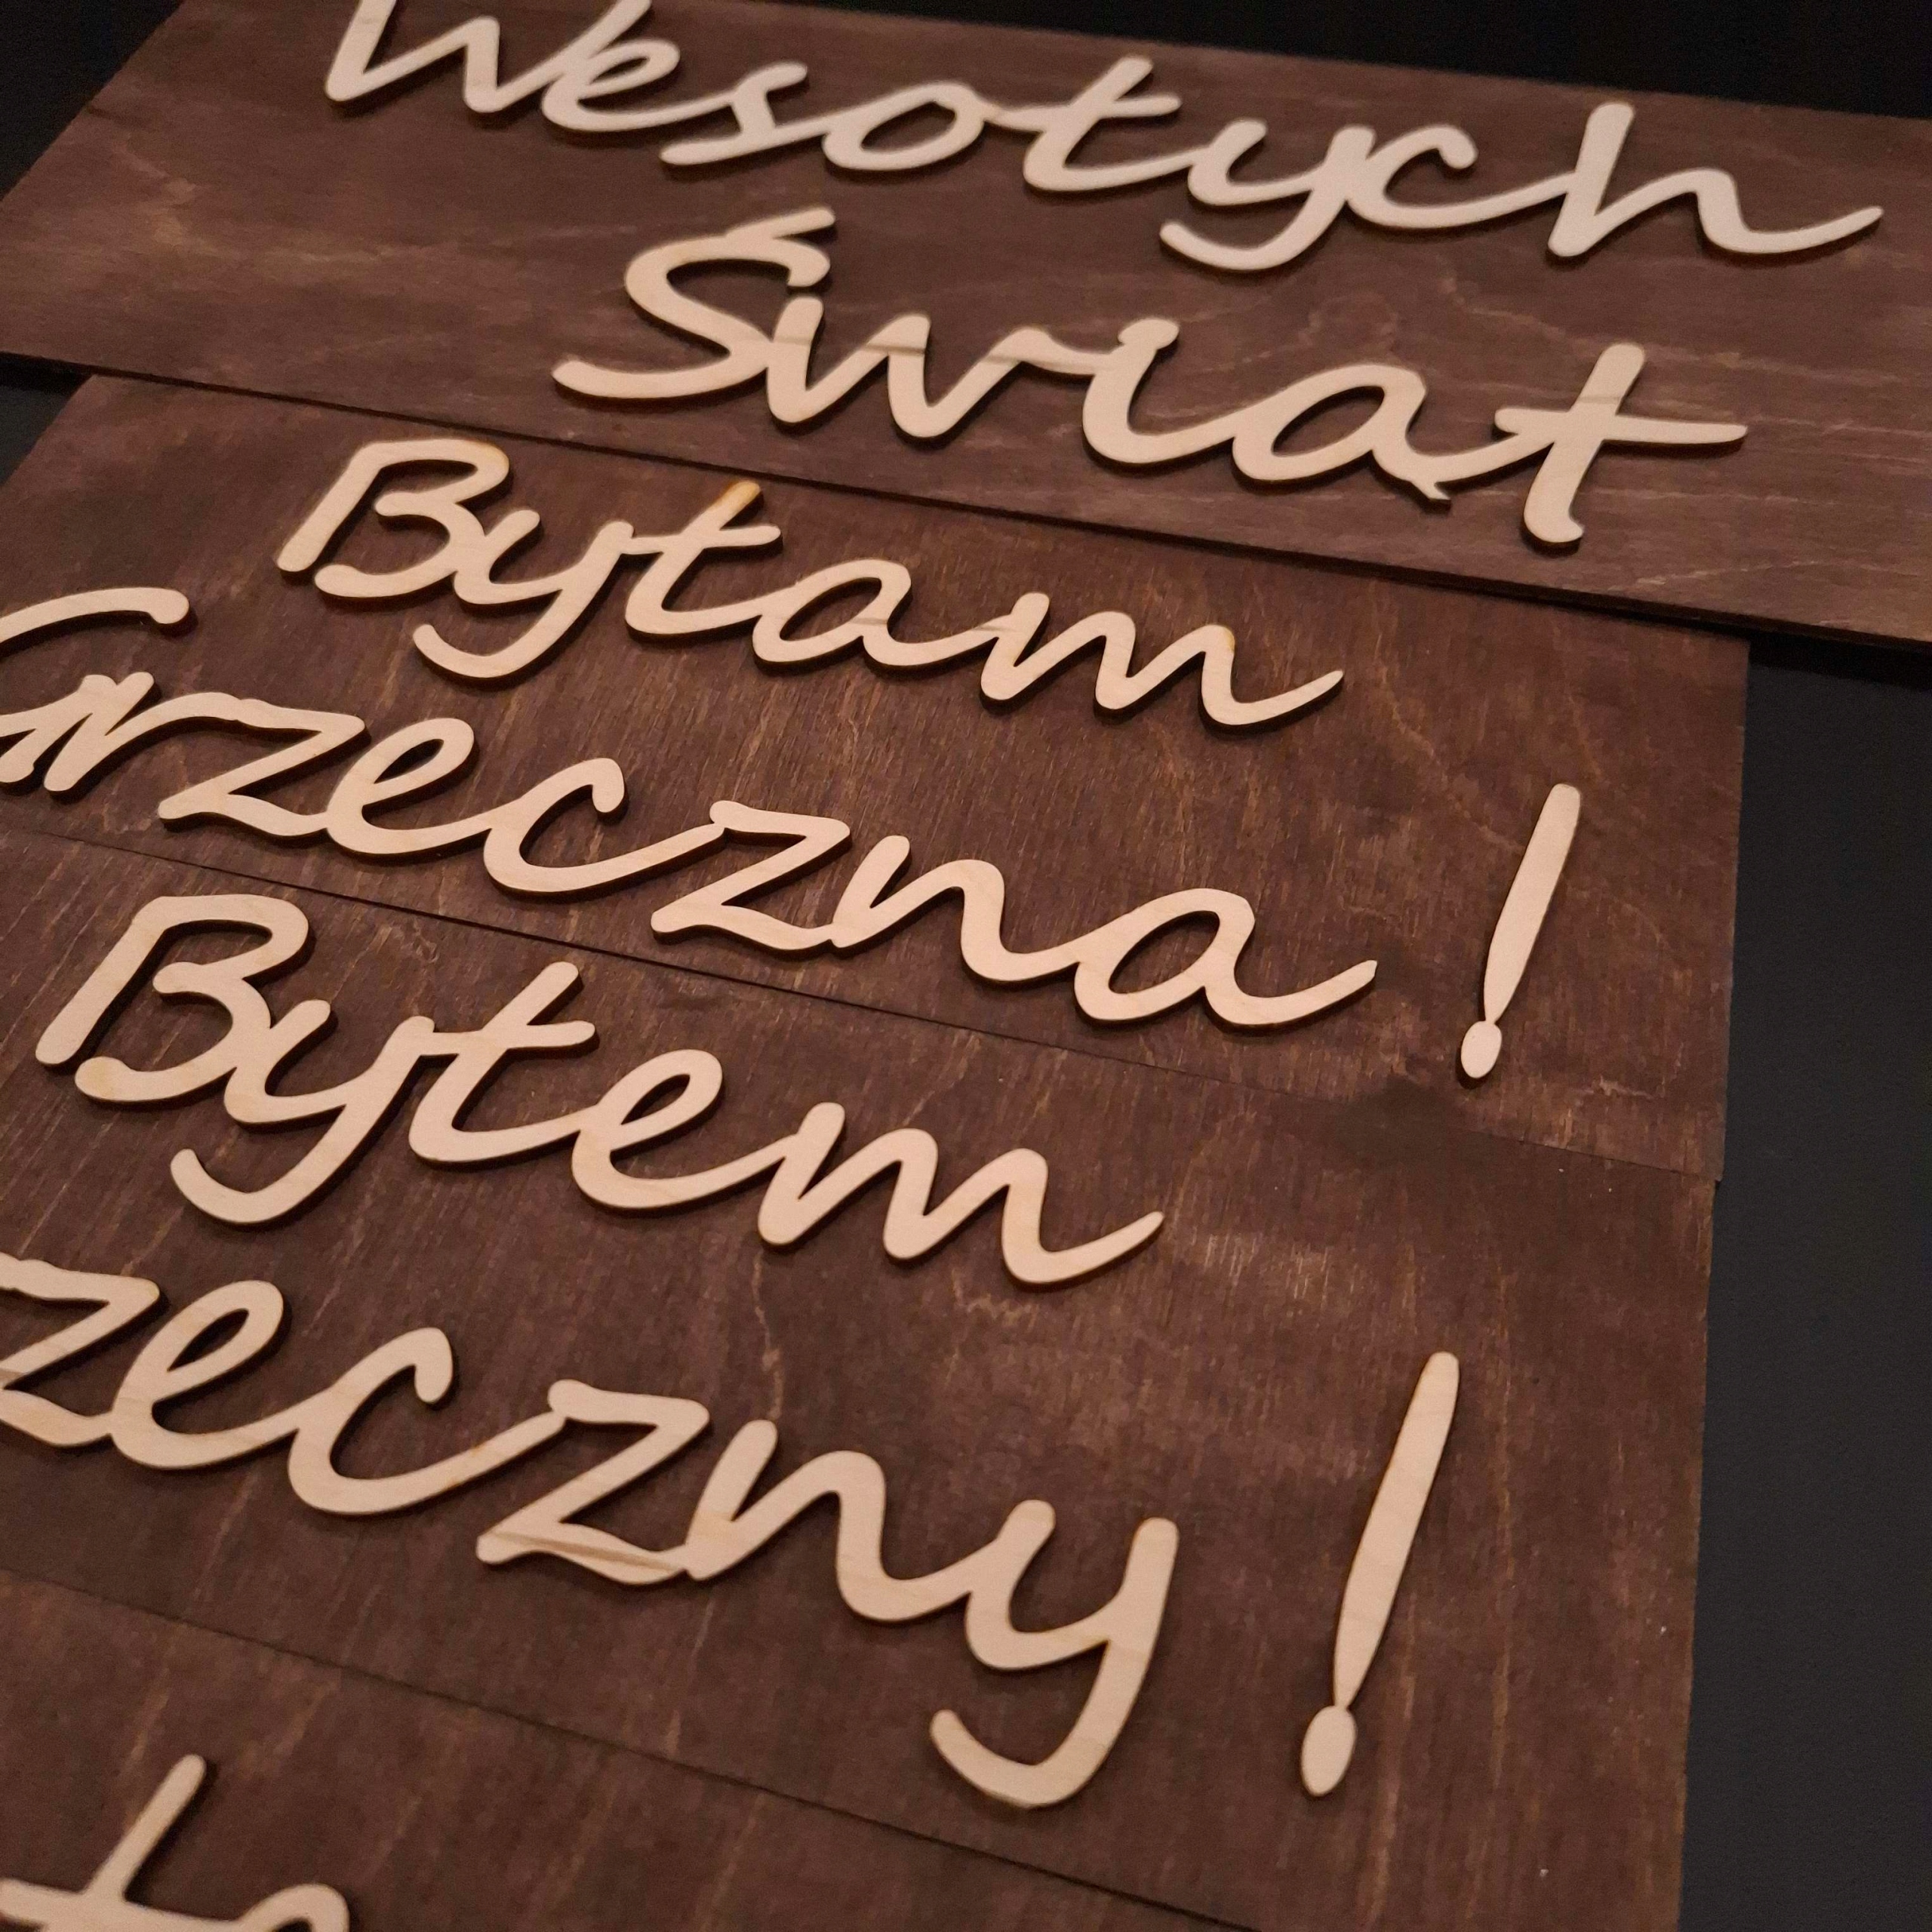 Wesołych
Świąt
Byłam
Grzeczna!
Byłem
rzeczny!